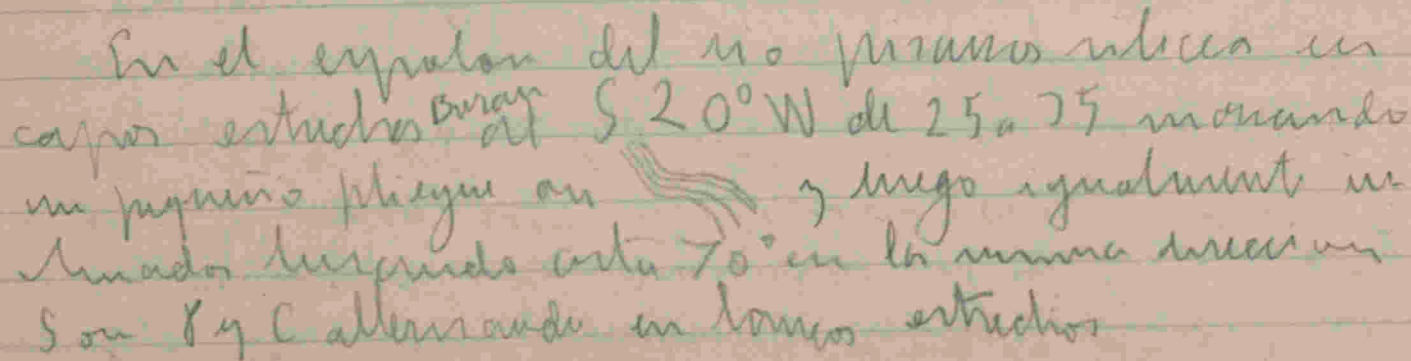 En el espolon del rio pizarras silicea en
capas estrechas Buzan al S 20° W de 25 a 75 marcando
un pequeño pliegue asi y luego igualment in
clinados buzando asta 70° en la misma direccion
Son Y y C alternando en bancos estrechos